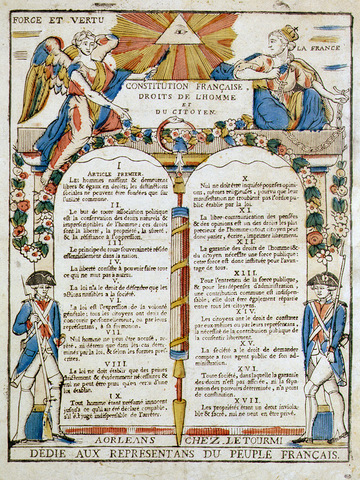 FORCE ET VERTU
LA FRANCE
CONSTITUTION FRANÇAISE,
DROITS DE L'HOMME
ET
DU CITOYEN.
I
ARTICLE PREMIER.
Les hommes naissent & demeurent
libres & égaux en droits; les distinctions
sociales ne peuvent être fondées que sur
l'utilité commune.
II.
Le but de toute association politique
est la conservation des droits naturels &
imprescriptibles de l'homme; ces droits
sont la liberté, la propriété, la sûreté,
& la résistance à l'oppression.
III.
Le principe de toute souveraineté réside
essentiellement dans la nation.
IV.
La liberté consiste à pouvoir faire tout
ce qui ne nuit pas à autrui.
V.
La loi n'a le droit de défendre que les
actions nuisibles à la société.
VI.
La loi est l'expression de la volonté
générale; tous les citoyens ont droit de
concourir personnellement, ou par leurs
représentans, à sa formation.
VII.
Nul homme ne peut être accusé,
ni détenu que dans les cas déter-
minés par la loi, & selon les formes pres-
crites.
VIII.
La loi ne doit établir que des peines
strictement & évidemment nécessaires &
nul ne peut être puni qu'en vertu d'une
loi établie.
IX.
Tout homme étant présumé innocent
jusqu'à ce qu'il ait été déclaré coupable,
X.
Nul ne doit être inquiété pour ses opini-
ons, mêmes religieuses, pourvu que leur
manifestation ne troublent pas l'ordre pu-
blic établi par la loi.
XI.
La libre communication des pensées
& des opinions est un des droits les plus
précieux de l'homme: tout citoyen peut
donc parler, écrire, imprimer librement.
XII.
La garantie des droits de l'homme &
du citoyen nécessite une force publique:
cette force est donc instituée pour l'avan-
tage de tous.
XIII.
Pour l'entretien de la force publique,
& pour les dépenses d'administration,
une contribution commune est indispen-
sible; elle doit être également répartie
entre tous les citoyens.
XIV.
Les citoyens ont le droit de constater
par eux mêmes ou par leurs représentans,
la nécessité de la contribution publique de
la consentir librement.
XV.
La société a le droit de demander
compte à tout agent public de son ad-
ministration.
XVI.
Toute société, dans laquelle la garantie
des droits n'est pas assurée, ni la sépa-
ration des pouvoirs déterminée, n'a point
de constitution.
XVII.
Les propriétés étant un droit inviola-
ble & sacré, nul ne peut en être privé.
A ORLEANS CHEZ LETOURMI
DÉDIE AUX REPRESENTANS DU PEUPLE FRANÇAIS.